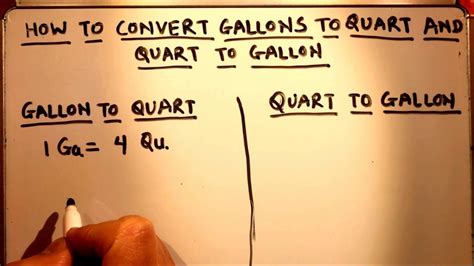 HOW TO CONVERT GALLONS TO QUART AND
QUART TO GALLON
GALLON TO QUART
1 Ga = 4 Qu.
QUART TO GALLON